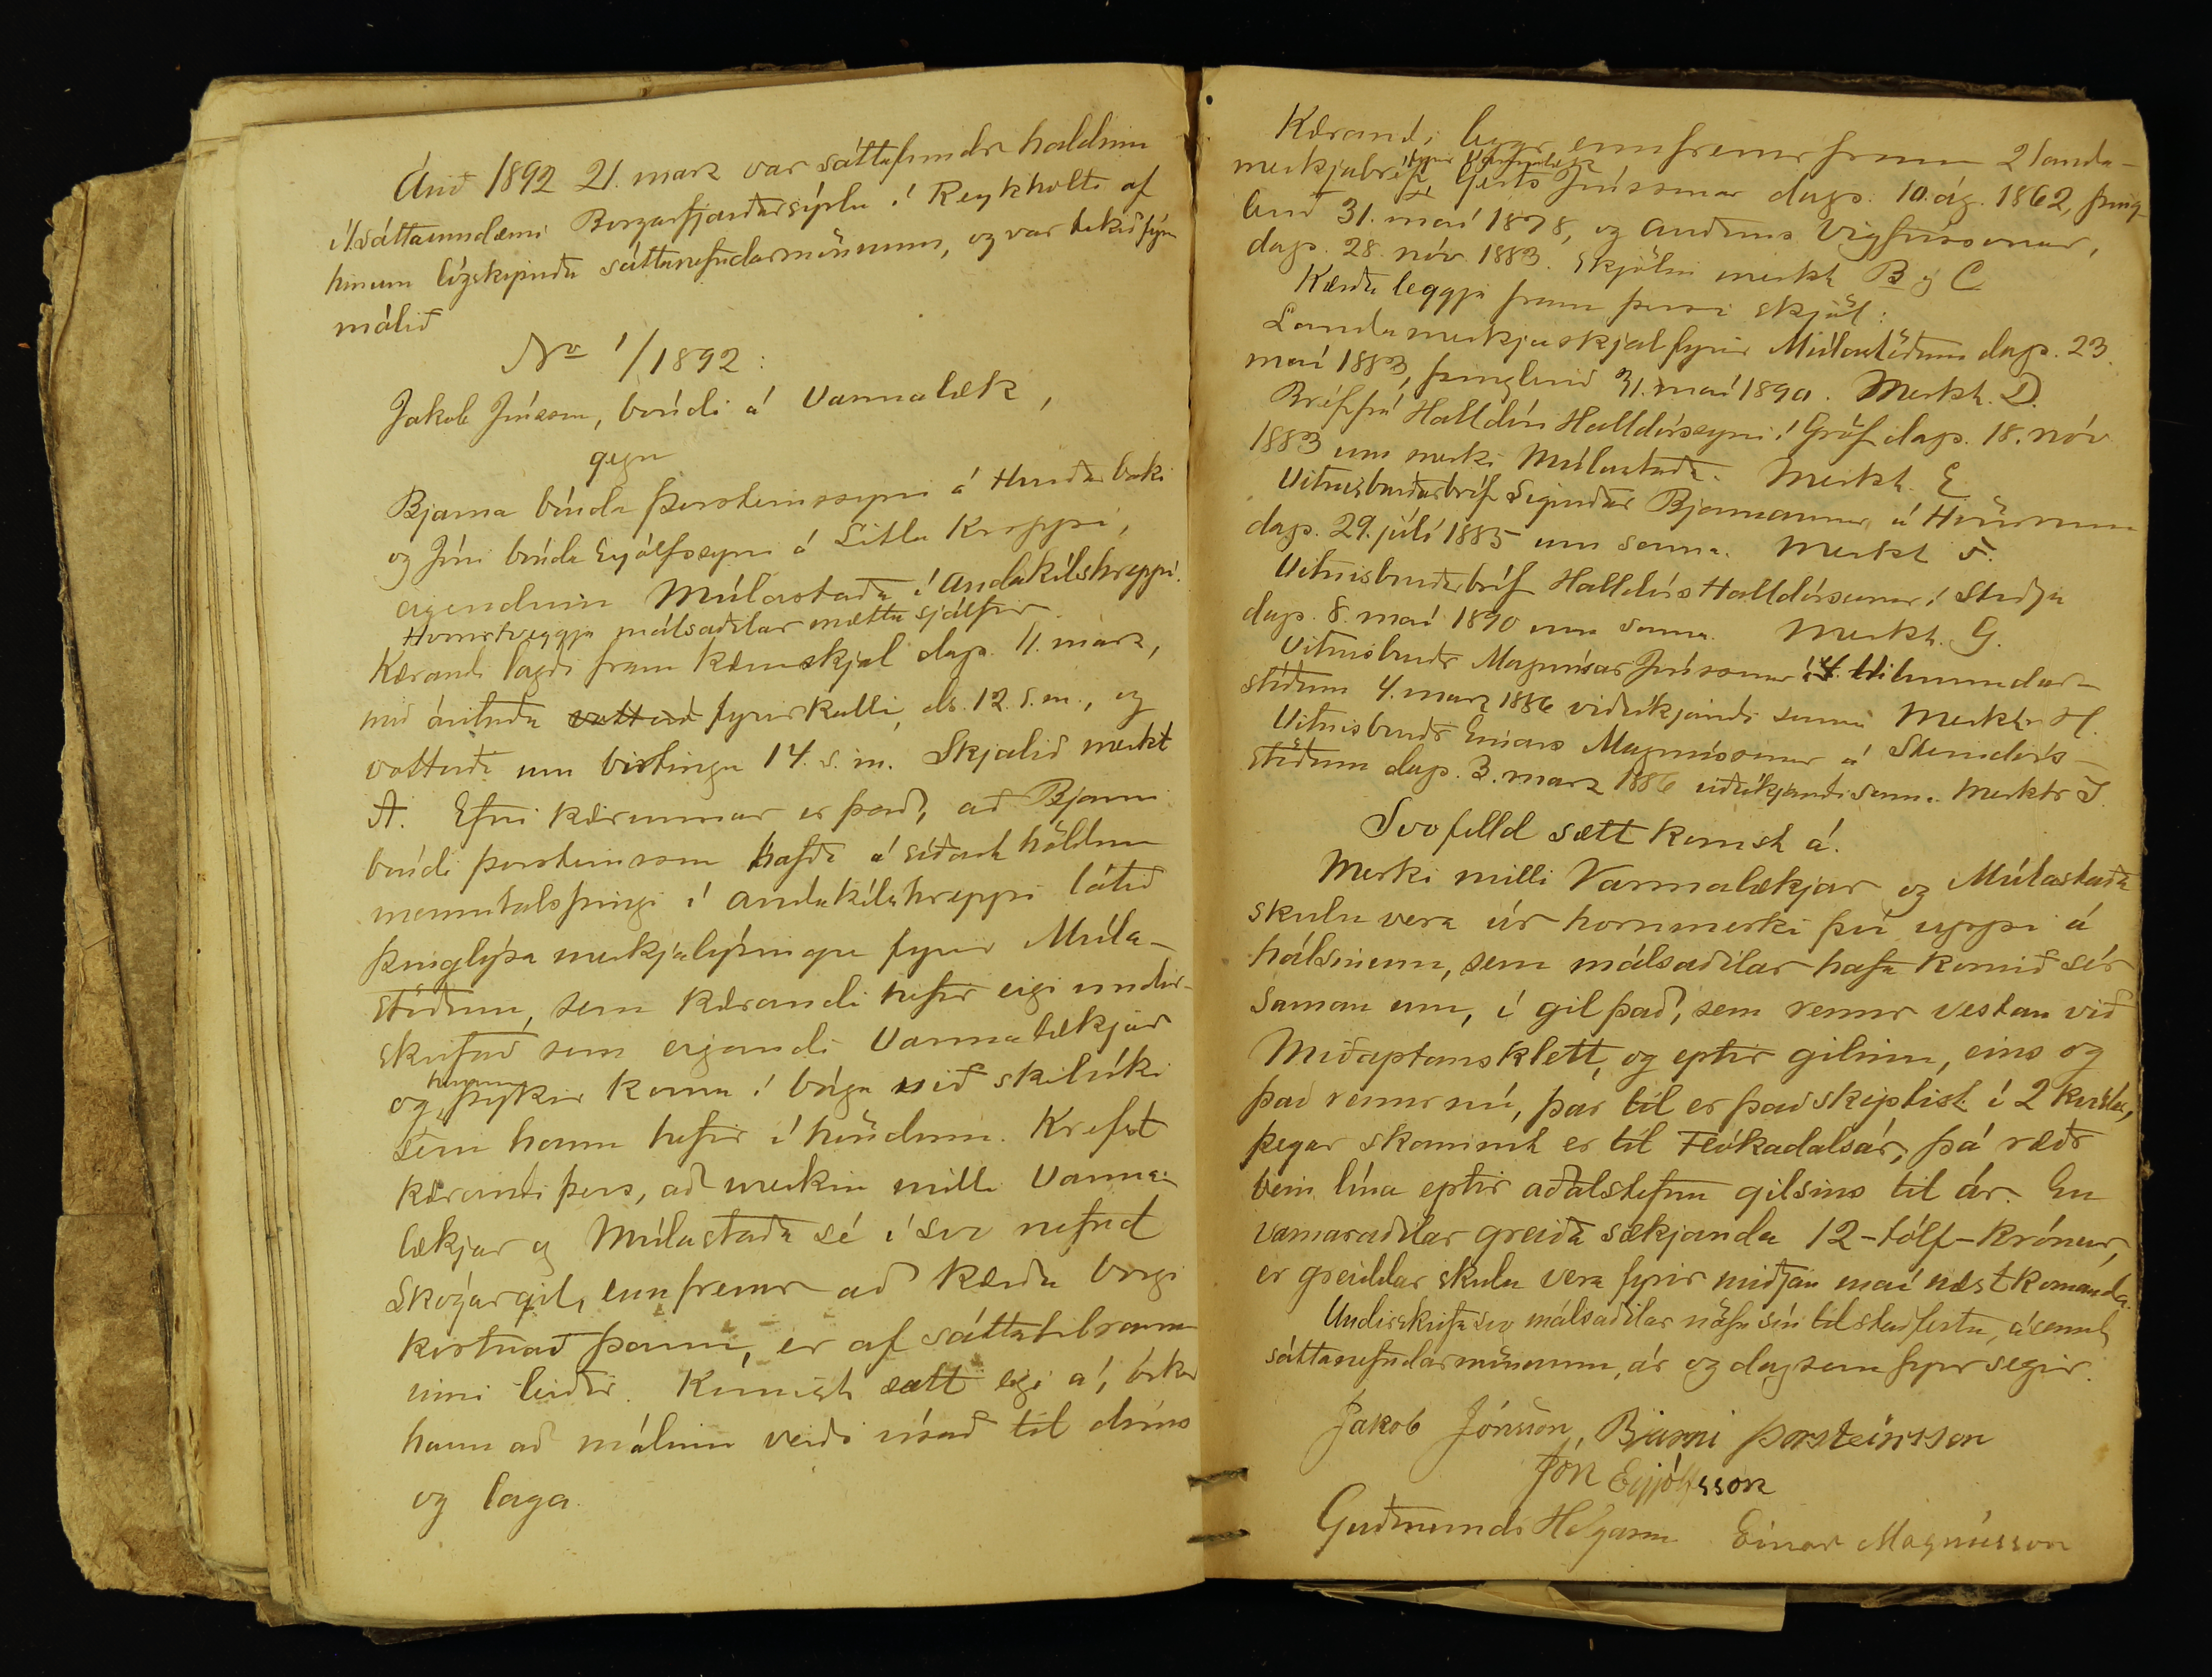 Árið 1892 21. marz var sáttafundr haldinn
í 1. sáttaumdæmi Borgarfjarðarsýslu í Reykholti af
hinum lögskipuðu sáttanefndarmönnum, og var tekið fyrir
málið
No 1/1892:
Jakob Jónsson, bóndi á Varmalæk,
gegn
Bjarna bónda Þorsteinssyni á Hurðarbaki
og Jóni bónda Eyjólfssyni á Litla Kroppi,
eigendum Múlastaða í Andakílshreppi.
Hvorutveggja málsaðilar mættu sjálfir.
Kærandi lagði fram kæruskjal dags. 11. marz,
með árituðu vottað fyrirkalli, ds. 12. s.m., og
vottorði um birtingu 14. s. m. Skjalið merkt
A. Efni kærunnar er það, að Bjarni
bóndi Þorsteinsson hafði á síðast höldnu
manntalsþingi í Andakílshreppi látið
þinglýsa merkjalýsingu fyrir Múla-
stöðum, sem kærandi hefir eigi undir-
skrifað sem eigandi Varmalækjar
og honum þykir koma í bága við skilríki
sem hann hefir í höndum. Krefst
kærandi þess, að merkin milli Varma-
lækjar og Múlastaða sé í svo nefnd
Skógargil, ennfremur að kærðu borgi
kostnað þann, er af sáttatilraun
inni leiðir. Komist sætt eigi á, óskar
hann að málinu verði vísað til dóms
og laga.
Kærandi leggr ennfremur fram 2 landa-
merkjabréf fyrir Varmalæk, Geirs Jónssonar dags. 10. ág. 1862, þing-
lesið 31. maí 1878, og Auðuns Vigfússonar,
dags. 28. nóv. 1883. Skjölin merkt B og C
Kærðu leggja fram þessi skjöl:
Landamerkjaskjal fyrir Múlastöðum dags. 23.
maí 1883, þinglesið 31. maí 1890. Merkt. D.
Bréf frá Halldóri Halldórssyni í Gröf dags. 18. nóv
1883 um merki Múlastaða. Merkt. E
Vitnisburðarbréf Sigurðar Bjarnasonar á Hvörnum
dags. 29. júlí 1885 um sama. Merkt F.
Vitnisburðarbréf Halldórs Halldórssonar í Steðja
dags. 8. maí 1890 um sama. Merkt. G.
Vitnisburðr Magnúsar Jónssonar í Vilmundar-
stöðum 4. marz 1886 viðvíkjandi sama Merktr H.
Vitnisburðr Einars Magnússonar á Steindórs-
stöðum dags. 3. marz 1886 viðvíkjandi sama. Merktr I.
Svofelld sætt komst á.
Merki milli Varmalækjar og Múlastaða
skulu vera úr hornmerki því uppi á
hálsinum, sem málsaðilar hafa komið sér
saman um, í gil það, sem rennr vestan við
Miðaptansklett, og eptir gilinu, eins og
það rennr nú, þar til er það skiptist í 2 kvísla,
þegar skammt er til Flókadalsár, þá ræðr
bein lína eptir aðalstefnu gilsins til ár. En
varnaraðilar greiða sækjanda 12 - tólf - krónur,
er greiddar skulu vera fyrir miðjan maí næstkomanda.
Undirskrifa svo málsaðilar nöfn sín til staðfestu, ásamt
sáttanefndarmönnum, ár og dag sem fyr segir.
Jakob Jónsson, Bjarni Þorsteinsson
Jón Eyjólfsson
Guðmundr Helgason Einar Magnússon